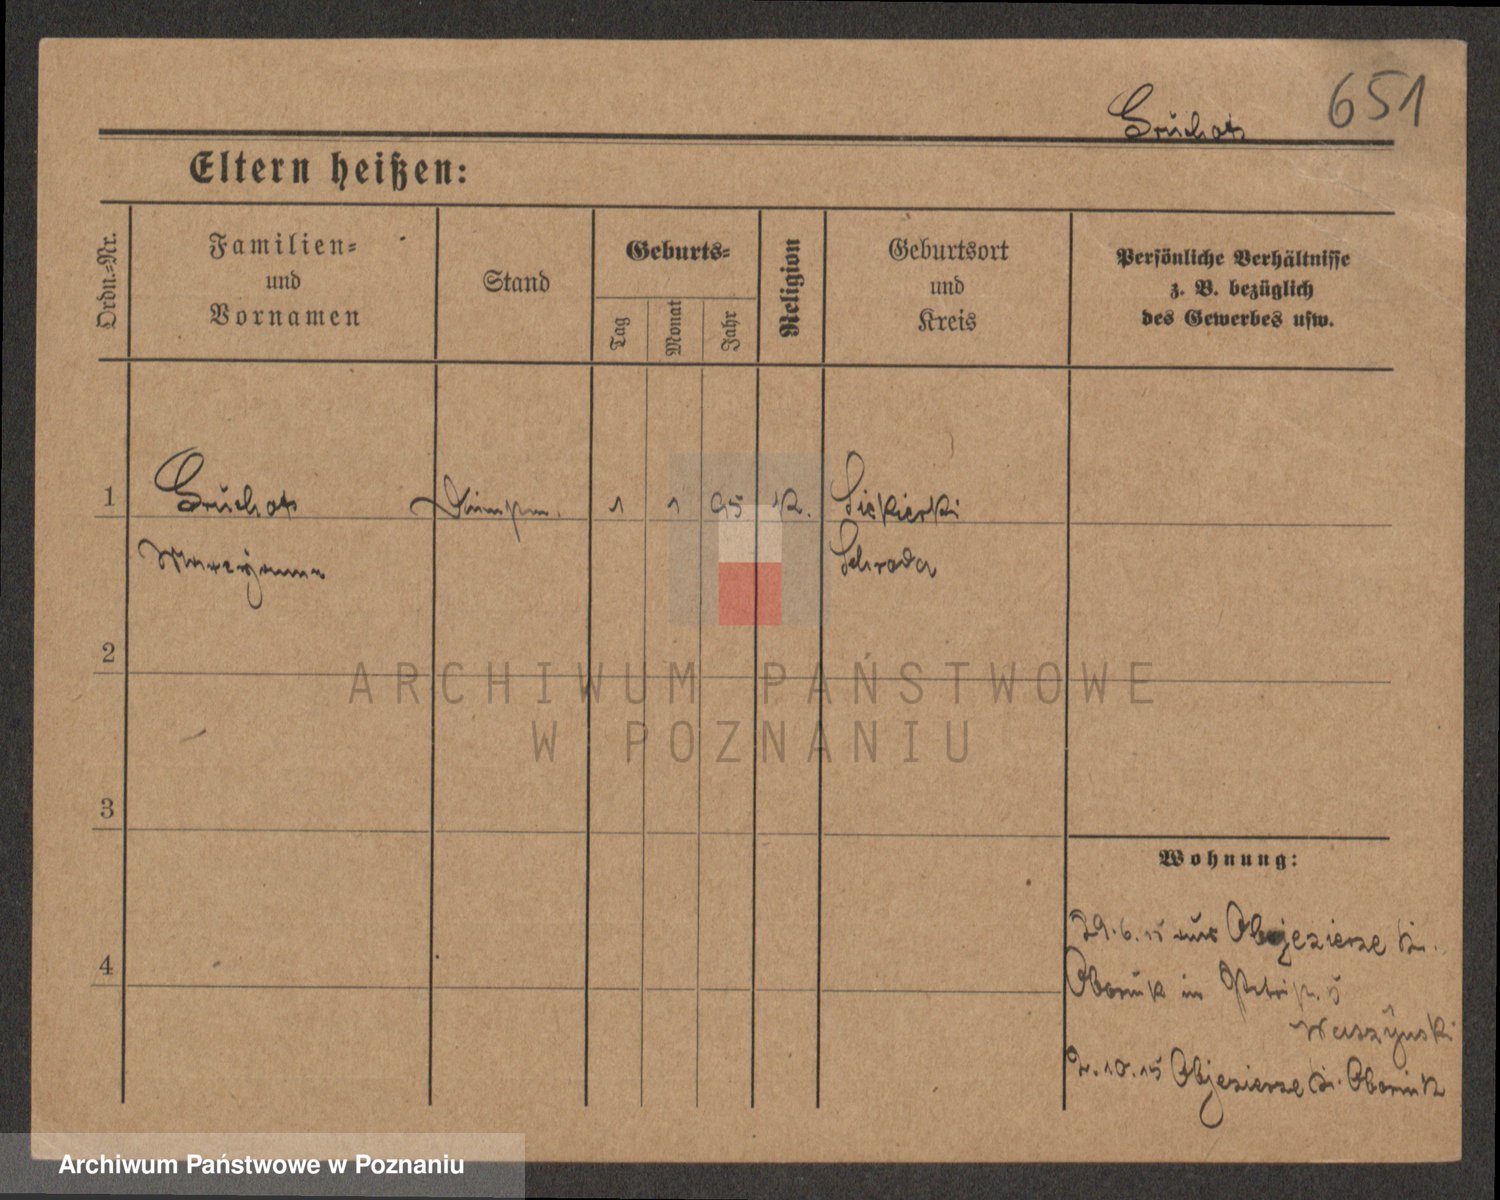 651
Gruchot
Eltern heißen:
Ordn.-Nr.
Familien-
und
Vornamen
Stand
Geburts-
Tag
Monat
Jahr
Religion
Geburtsort
und
Kreis
Persönliche Verhältnisse
z. B. bezüglich
des Gewerbes usw.
1 Gruchot 1 1 95 K. Siekierki
Maryanna Schroda
2
3
4
Wohnung:
29.6.15 aus Objezierze Kr.
Obornik in
Waszynski
2.10.15 Objezierze Kr. Obornik
ARCHIWUM PAŃSTWOWE
W POZNANIU
Archiwum Państwowe w Poznaniu